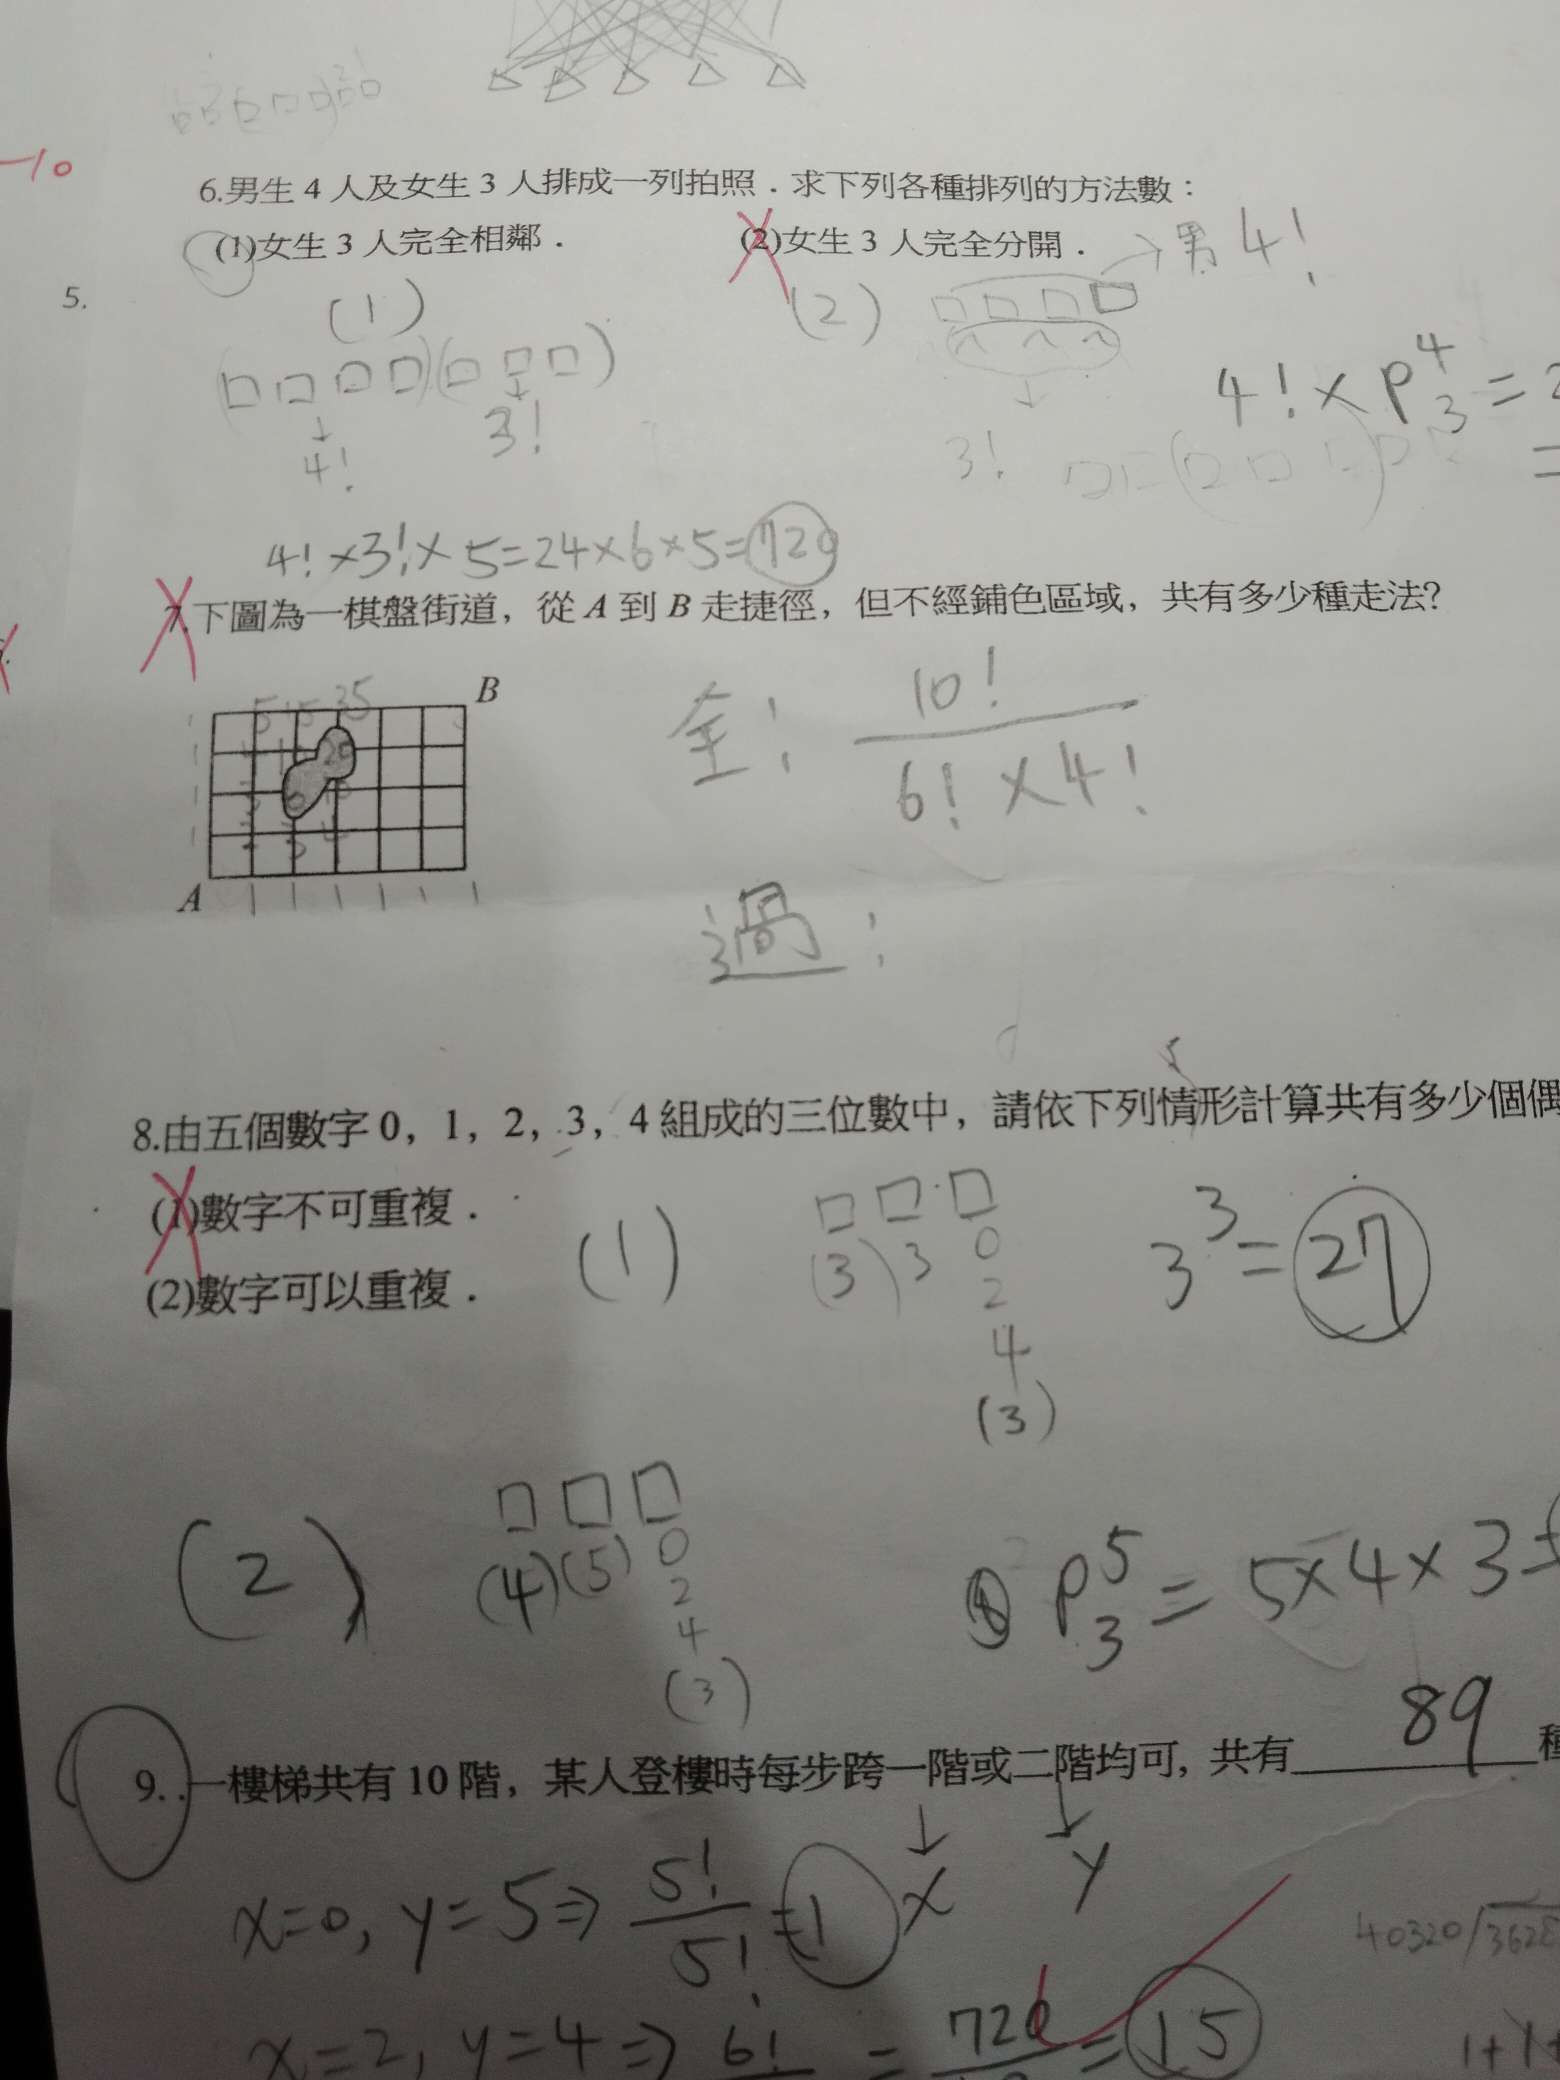 -10
6.男生 4 人及女生 3 人排成一列拍照．求下列各種排列的方法數：
(1)女生 3 人完全相鄰．
(2)女生 3 人完全分開．
→男 4!
5.
(1)
(2)
3!
4!
4! × P⁴₃ =
3!
4! × 3! × 5 = 24 × 6 × 5 = 720
7.下圖為一棋盤街道，從 A 到 B 走捷徑，但不經鋪色區域，共有多少種走法?
B
5 15 35
A
1 1 1 1 1 1
全: 10! / 6! × 4!
過:
8.由五個數字 0，1，2，3，4 組成的三位數中，請依下列情形計算共有多少個偶
(1)數字不可重複．
(2)數字可以重複．
(1)
(3) 3 0
2
4
(3)
3³ = 27
(2)
(4)(5) 0
2
4
(3)
P⁵₃ = 5×4×3=
9. 一樓梯共有 10 階，某人登樓時每步跨一階或二階均可, 共有 89 種
↓ ↓
x y
x=0, y=5 ⇒ 5!/5! = 1
40320
x=2, y=4 ⇒ 6! = 720 = 15